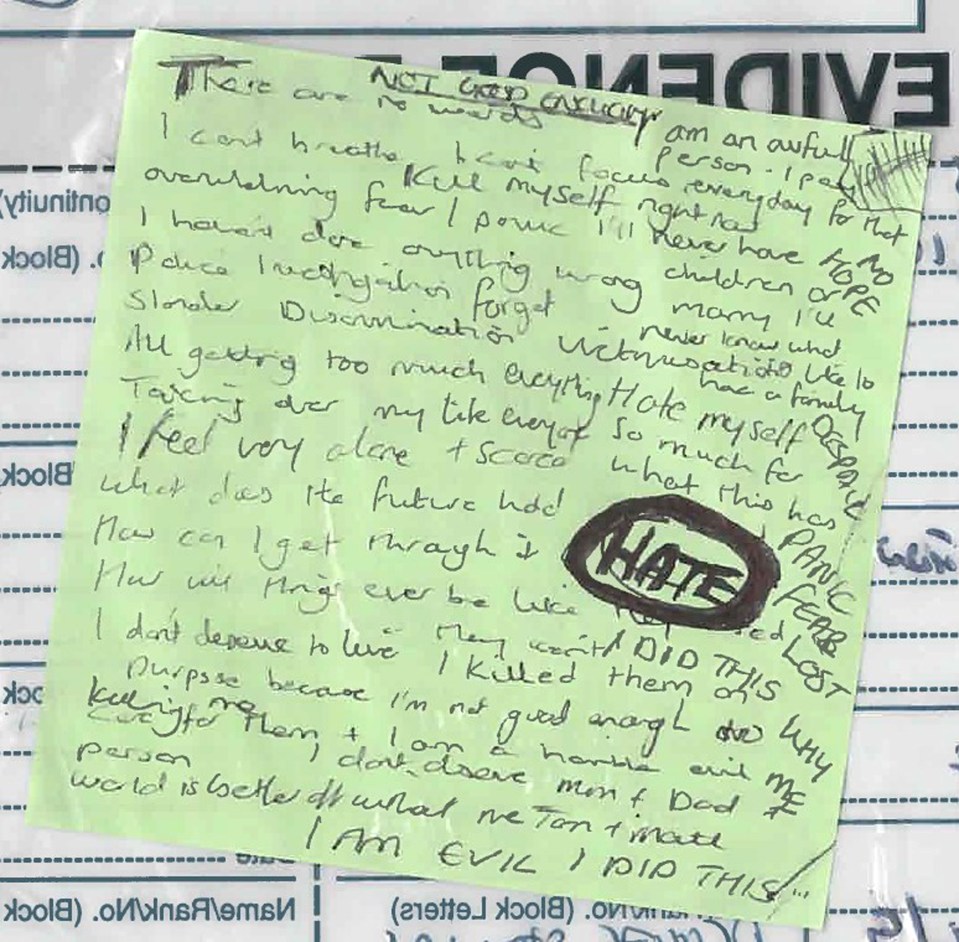 NOT GOOD ENOUGH
There are no words
I can't breathe I can't focus
overwhelming fear I panic
Kill myself right now
I haven't done anything wrong
Police Investigation forget
Slander Discrimination Victimisation
All getting too much everything
Taking over my life everyday
I feel very alone + scared
what does the future hold
How can I get through it
How will things ever be like
I don't deserve to live
I killed them on
purpose because I'm not good enough
care for them + I am a horrible evil
person
I don't deserve Mum + Dad
world is better off without me
I AM EVIL I DID THIS
I am an awful
person. I pay
everyday for that
I'll never have
children or
marry I'll
never know what
it's like to
have a family
Hate myself
so much for
what this has
HATE
I DID THIS
WHY
ME
NO
HOPE
DESPAIR
PANIC
FEAR
LOST
killing me
EVIDENCE
ontinuity)
o. (Block
Block
ock
Name/Rank/No. (Block
/No. (Block Letters)